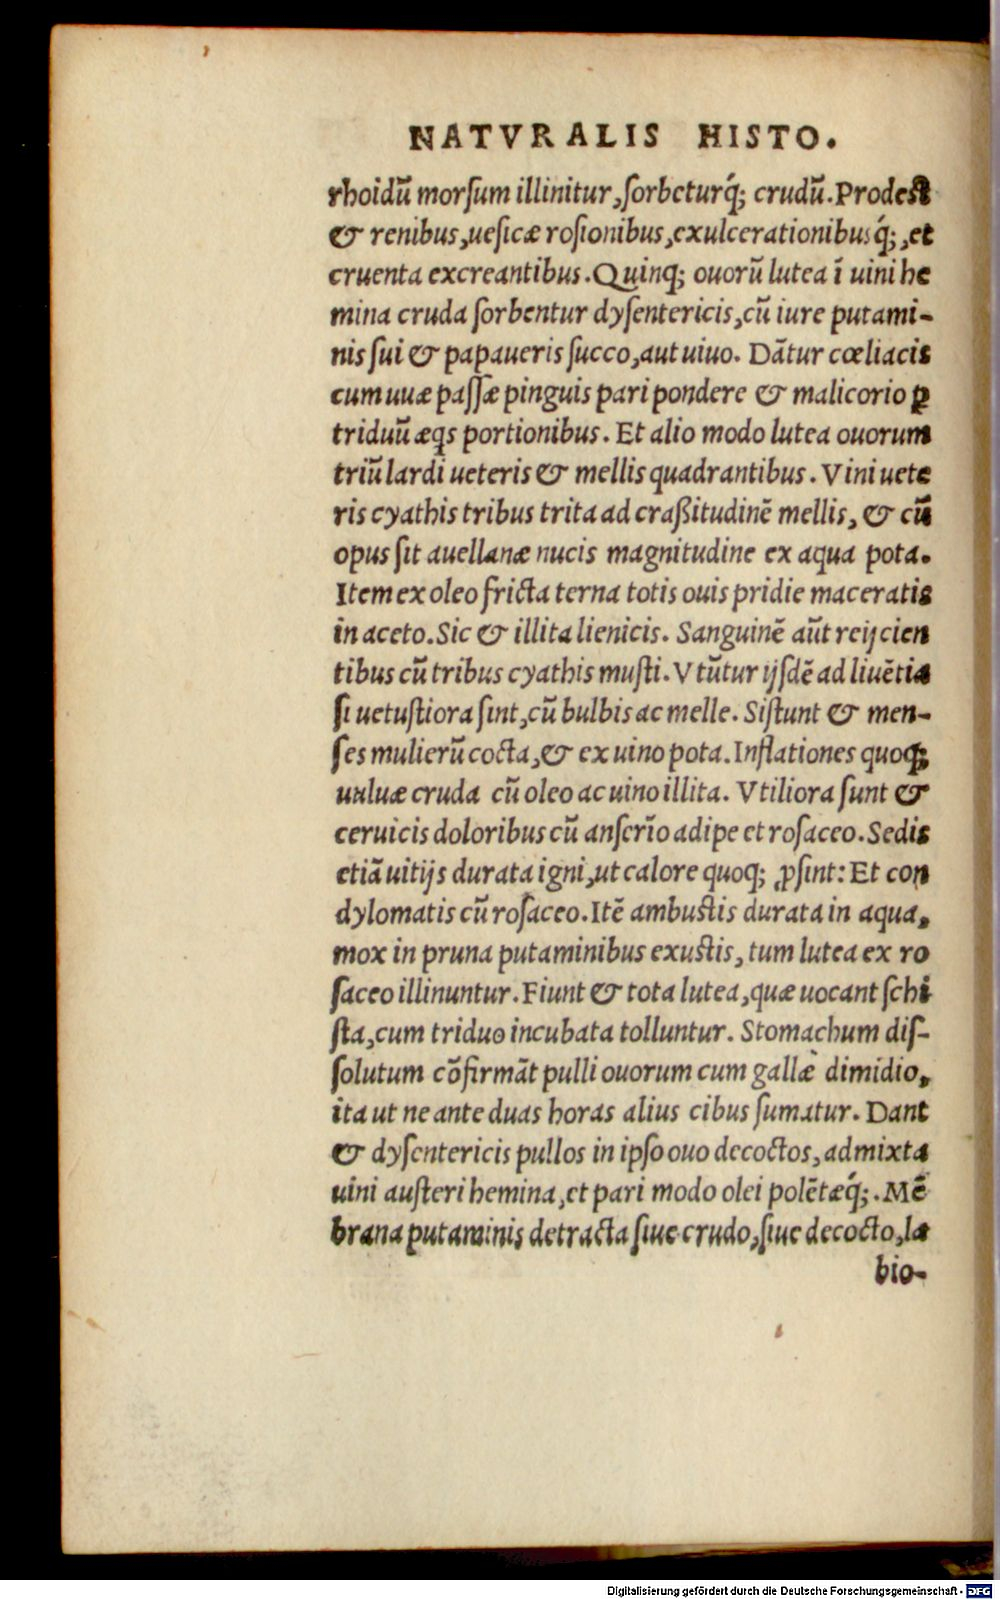 NATVRALIS HISTO.
rhoidũ morſum illinitur, ſorbeturq́; crudũ. Prodeſt
& renibus, ueſicæ roſionibus, exulcerationibusq́;, et
cruenta excreantibus. Quinq; ouorũ lutea ĩ uini he
mina cruda ſorbentur dyſentericis, cũ iure putami-
nis ſui & papaueris ſucco, aut uiuo. Dãtur cœliacis
cum uuæ paſſæ pinguis pari pondere & malicorio ꝑ
triduũ æqs portionibus. Et alio modo lutea ouorum
triũ lardi ueteris & mellis quadrantibus. Vini uete
ris cyathis tribus trita ad craßitudinẽ mellis, & cũ
opus ſit auellanæ nucis magnitudine ex aqua pota.
Item ex oleo fricta terna totis ouis pridie maceratis
in aceto. Sic & illita lienicis. Sanguinẽ aũt reijcien
tibus cũ tribus cyathis muſti. Vtũtur ijſdẽ ad liuẽtia
ſi uetuſtiora ſint, cũ bulbis ac melle. Siſtunt & men-
ſes mulierũ cocta, & ex uino pota. Inflationes quoq;
uuluæ cruda cũ oleo ac uino illita. Vtiliora ſunt &
ceruicis doloribus cũ anſerĩo adipe et roſaceo. Sedis
etiã uitijs durata igni, ut calore quoq; ꝓſint: Et con
dylomatis cũ roſaceo. Itẽ ambuſtis durata in aqua,
mox in pruna putaminibus exuſtis, tum lutea ex ro
ſaceo illinuntur. Fiunt & tota lutea, quæ uocant ſchi
ſta, cum triduo incubata tolluntur. Stomachum diſ-
ſolutum cõfirmãt pulli ouorum cum gallæ dimidio,
ita ut ne ante duas horas alius cibus ſumatur. Dant
& dyſentericis pullos in ipſo ouo decoctos, admixta
uini auſteri hemina, et pari modo olei polẽtæq́;. Mẽ
brana putaminis detracta ſiue crudo, ſiue decocto, la
bio-
Digitalisierung gefördert durch die Deutsche Forschungsgemeinschaft - DFG